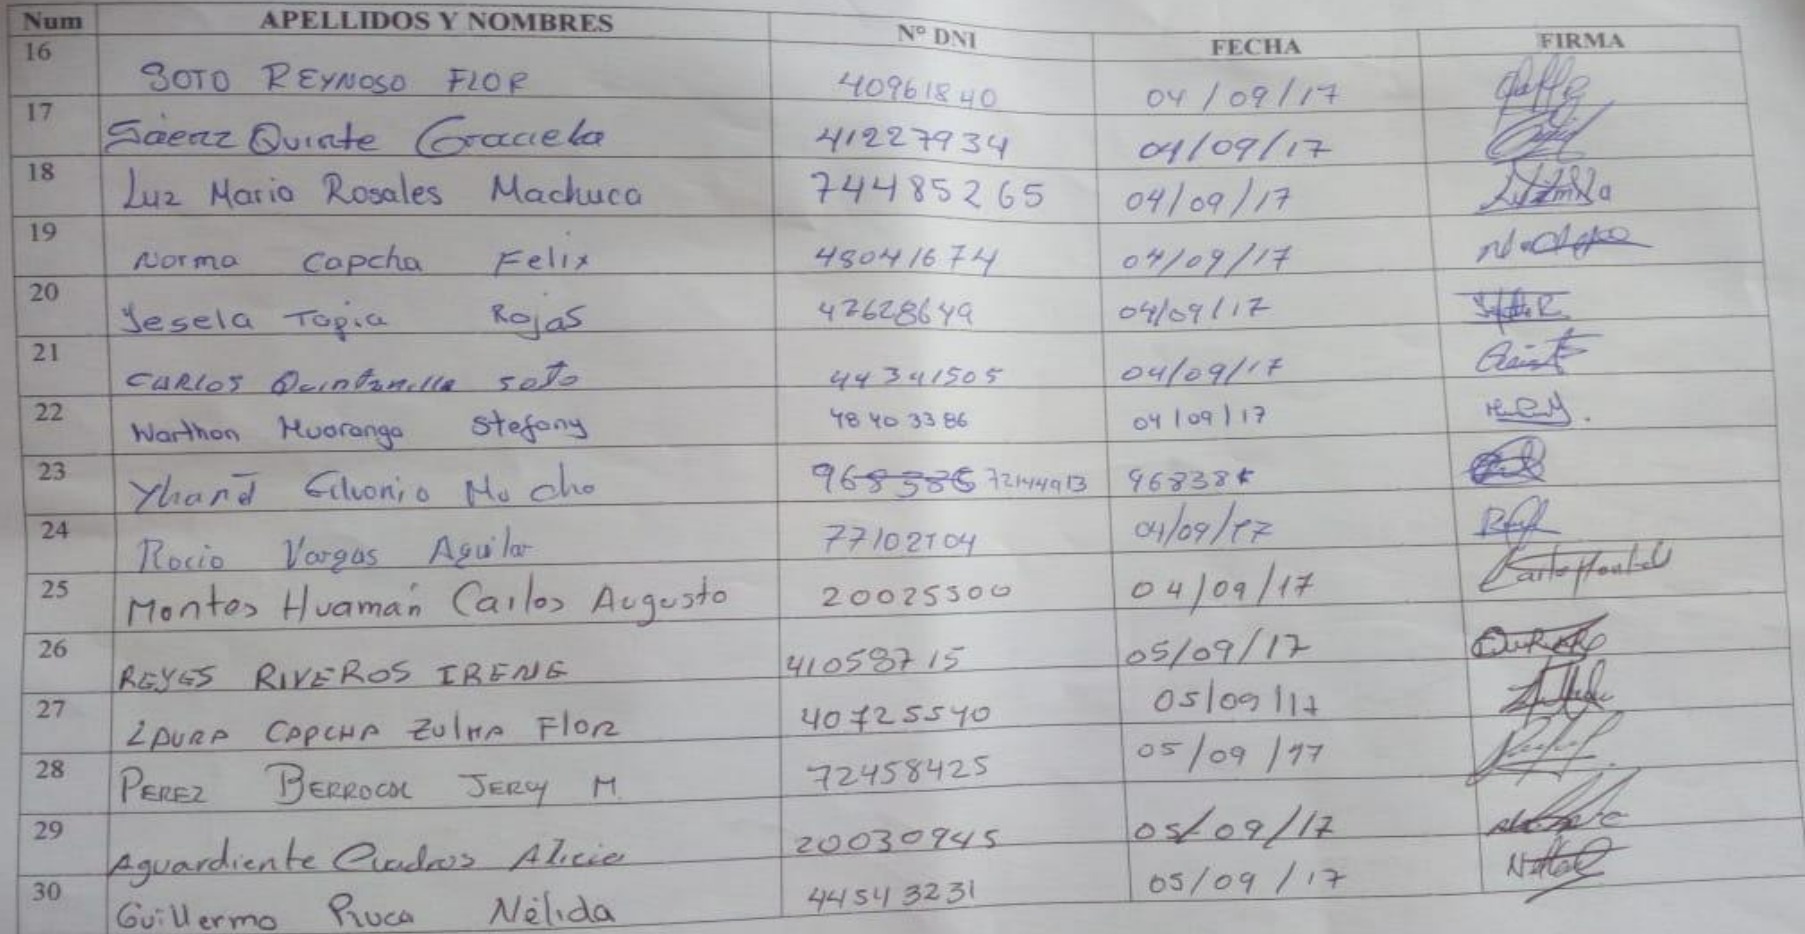 Num APELLIDOS Y NOMBRES Nº DNI FECHA FIRMA
16 SOTO REYNOSO FLOR 40961840 04/09/17
17 Sáenz Quinte Graciela 41227934 04/09/17
18 Luz Maria Rosales Machuca 744485265 04/09/17
19 Norma Capcha Felix 48041674 04/09/17
20 Yesela Tapia Rojas 42628649 04/09/17
21 CARLOS Quintanilla SOTO 44341505 04/09/17
22 Warthon Huaranga Stefany 48403386 04/09/17
23 72144913
24 Rocio Vargas Aguilar 77102104 04/09/17
25 Montes Huamán Carlos Augusto 20025300 04/09/17
26 REYES RIVEROS IRENE 41058715 05/09/17
27 LAURA CAPCHA ZULMA FLOR 40725540 05/09/17
28 PEREZ BERROCAL JERCY M. 72458425 05/09/17
29 Aguardiente Cuadros Alicia 20030945 05/09/17
30 Guillermo Nélida 44543231 05/09/17